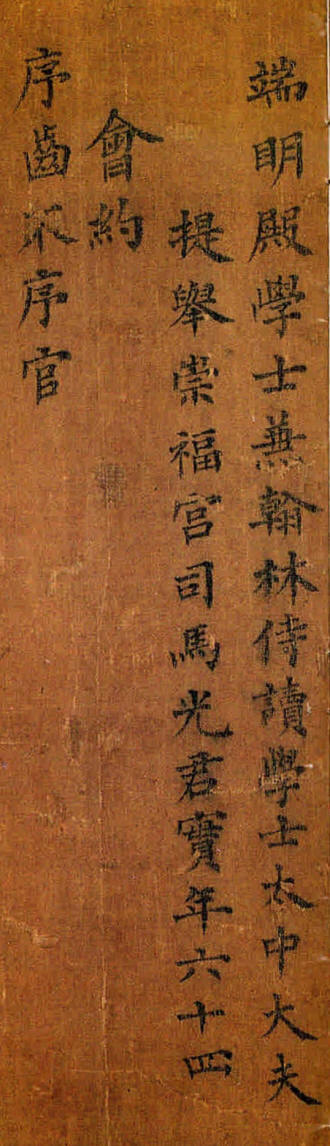 端明殿學士兼翰林侍讀學士太中大夫
提舉崇福宮司馬光君實年六十四
會約
序齒不序官